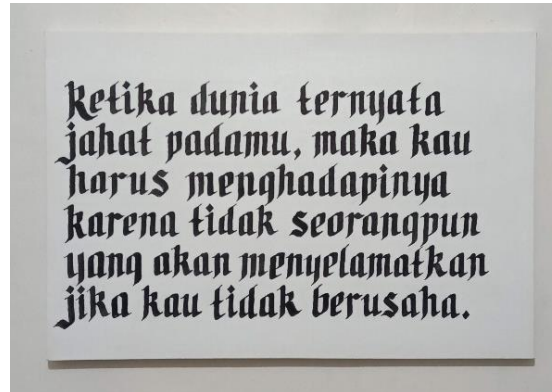 Ketika dunia ternyata
jahat padamu, maka kau
harus menghadapinya
karena tidak seorangpun
yang akan menyelamatkan
jika kau tidak berusaha.